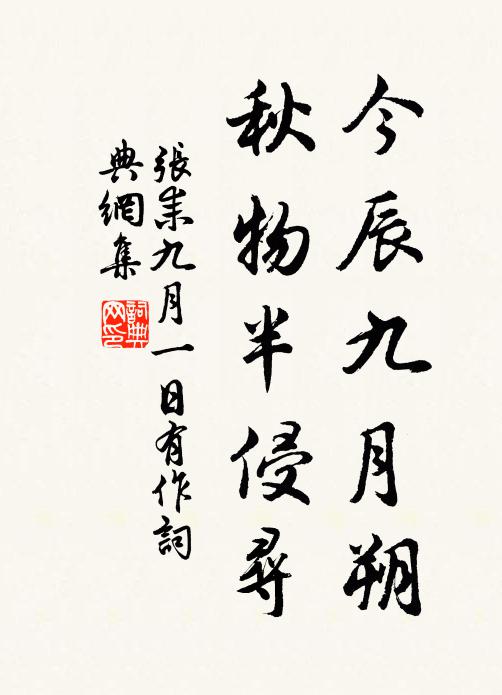 今辰九月朔
秋物半侵尋
張耒九月一日有作詞
典網集
詞典
网印